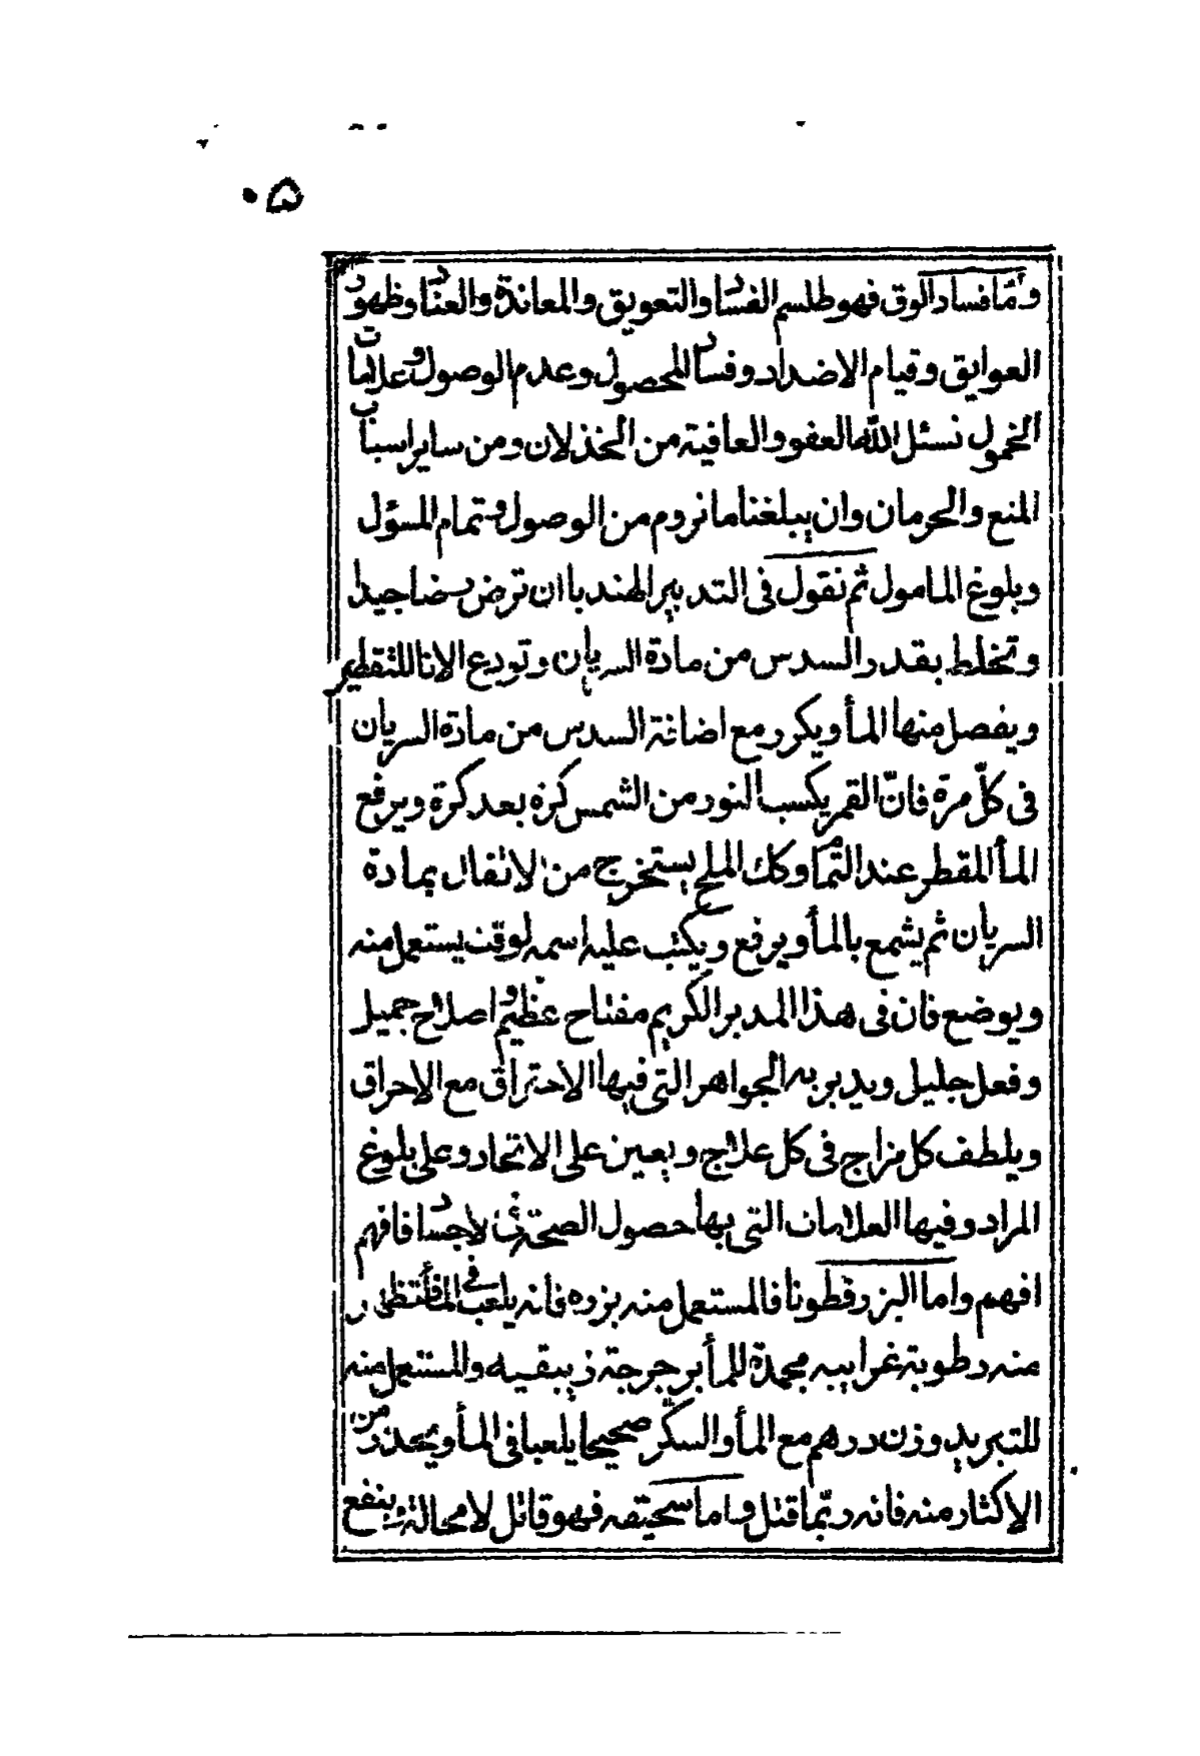 ٥٠
وامّا فساد الوق فهو طلسم الفساد والتعويق والمعاندة والعناد وظهور
العوايق وقيام الاضداد وفساد المحصول وعدم الوصول وعلامات
الخمول نسئل الله العفو والعافية من الخذلان ومن ساير اسباب
المنع والحرمان وان يبلغنا ما نروم من الوصول وتمام المسؤل
وبلوغ المامول ثم نقول فى التدبير الهندباان ترض رضا جيدا
وتخلط بقدر السدس من مادة السريان وتودع الانا للتقطير
ويفصل منها المأ ويكرر مع اضافة السدس من مادة السريان
فى كلّ مرة فانّ القمر يكسب النور من الشمس كرة بعد كرة ويرفع
المأ المقطر عند التمام وكك الملح يستخرج من الاثفال بمادة
السريان ثم يشمع بالمأ ويرفع ويكتب عليه اسمه لوقت يستعمل منه
ويوضع فان فى هذا المدبر الكريم مفتاح عظيم واصلاح جميل
وفعل جليل ويدبر به الجواهر التى فيها الاحتراق مع الاحراق
ويلطف كل مزاج فى كل علاج ويعين على الاتحاد وعلى بلوغ
المراد وفيها العلامات التى بها حصول الصحة فى الاجساد فافهم
افهم واما البزر قطونا فالمستعمل منه بزره فانه يلعب فى المأ فتظهر
منه رطوبة غرابيه مجمدة للمأ برجرجة زيبقيه والمستعمل منه
للتبريد وزن درهم مع المأ والسكر صحيحا يلعبا فى المأ ويحذر من
الاكثار منه فانه ربّما قتل واما سحيقه فهو قاتل لا محالة وينفع